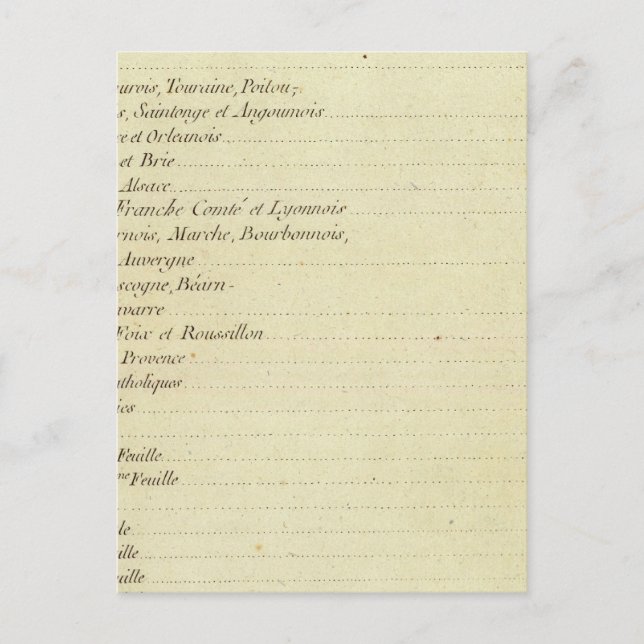 urois, Touraine, Poitou,-
s, Saintonge et Angoumois
ce et Orleanois
et Brie
Alsace
Franche Comté et Lyonnois
rnois, Marche, Bourbonnois,
Auvergne
scogne, Béarn-
avarre
Foix et Roussillon
Provence
atholiques
ies
Feuille
me Feuille
le
ille
uille